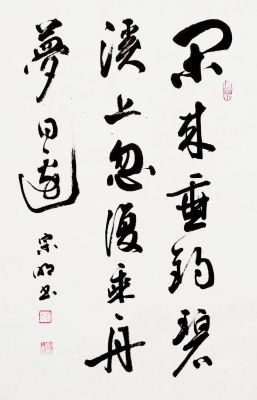 閑來垂釣碧
溪上忽復乘舟
夢日邊
宗明書